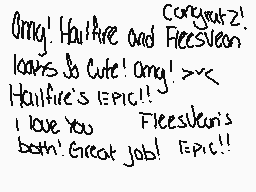 Congratz!
Omg! Hailfire and Fleesvean
looks so cute! omg! >v<
Hailfire's EPIC!!
i love you Fleesvean's
both! Great job! EPIC!!